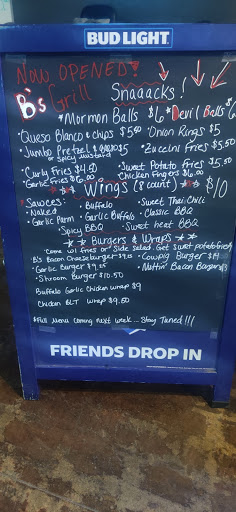 BUD LIGHT
NOW OPENED!
B's Grill Snaaacks!
*Mormon Balls $6 *Devil Balls $6
*Queso Blanco & chips $5.50 *Onion Rings $5
*Jumbo Pretzel
or spicy mustard
*Zuccini Fries $5.50
*Curly Fries $4.50 *Sweet Potato Fries $5.50
*Garlic Fries $6.00 *Chicken Fingers $6.00
*** Wings (8 count) *** $10
Sauces: *Buffalo *Sweet Thai Chili
*Naked *Garlic Buffalo *Classic BBQ
*Garlic Parm *Sweet heat BBQ
*Spicy BBQ
** Burgers & Wraps **
Come w/ fries or side salad Get sweet potato fries
*B's Bacon Cheeseburger *Cowpig Burger $14
*Garlic Burger $9.25 *Muffin' Bacon
*Shroom Burger $10.50
Buffalo Garlic Chicken Wrap $9
Chicken BLT Wrap $9.50
FRIENDS DROP IN
*Full Menu coming next week... Stay Tuned!!!